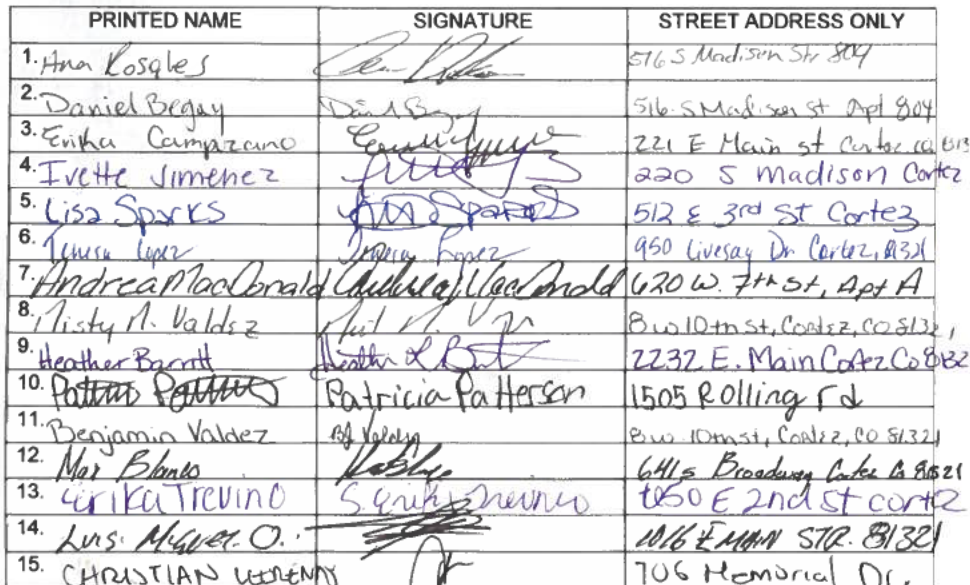 PRINTED NAME SIGNATURE STREET ADDRESS ONLY
1. Ana Rosales 516 S Madison Str 804
2. Daniel Begay 516 S Madison St Apt 804
3. Erika Campzano 221 E Main st Cortez, co
4. Ivette Jimenez 220 S madison Cortez
5. Lisa Sparks Sparks 512 E 3rd St Cortez
6. Teresa Lopez Teresa Lopez 950 Livesay Dr. Cortez, 81321
7. Andrea MacDonald Andrea J MacDonald 620 W. 7th St, Apt A
8. Misty M. Valdez 8 w 10th st, Cortez, CO 8132
9. Heather Barrett Heather L 2232 E. Main Cortez Co 8132
10. Patricia Patterson 1505 Rolling rd
11. Benjamin Valdez BJ Valdez 8 w 10th st, Cortez, CO 81321
12. Max Blanco 641 s Broadway Cortez Co 81321
13. Erika Trevino Trevino E 2nd St cortez
14. Luis Miguel O. 1016 E MAIN STR. 81321
15. CHRISTIAN 706 Memorial Dr.